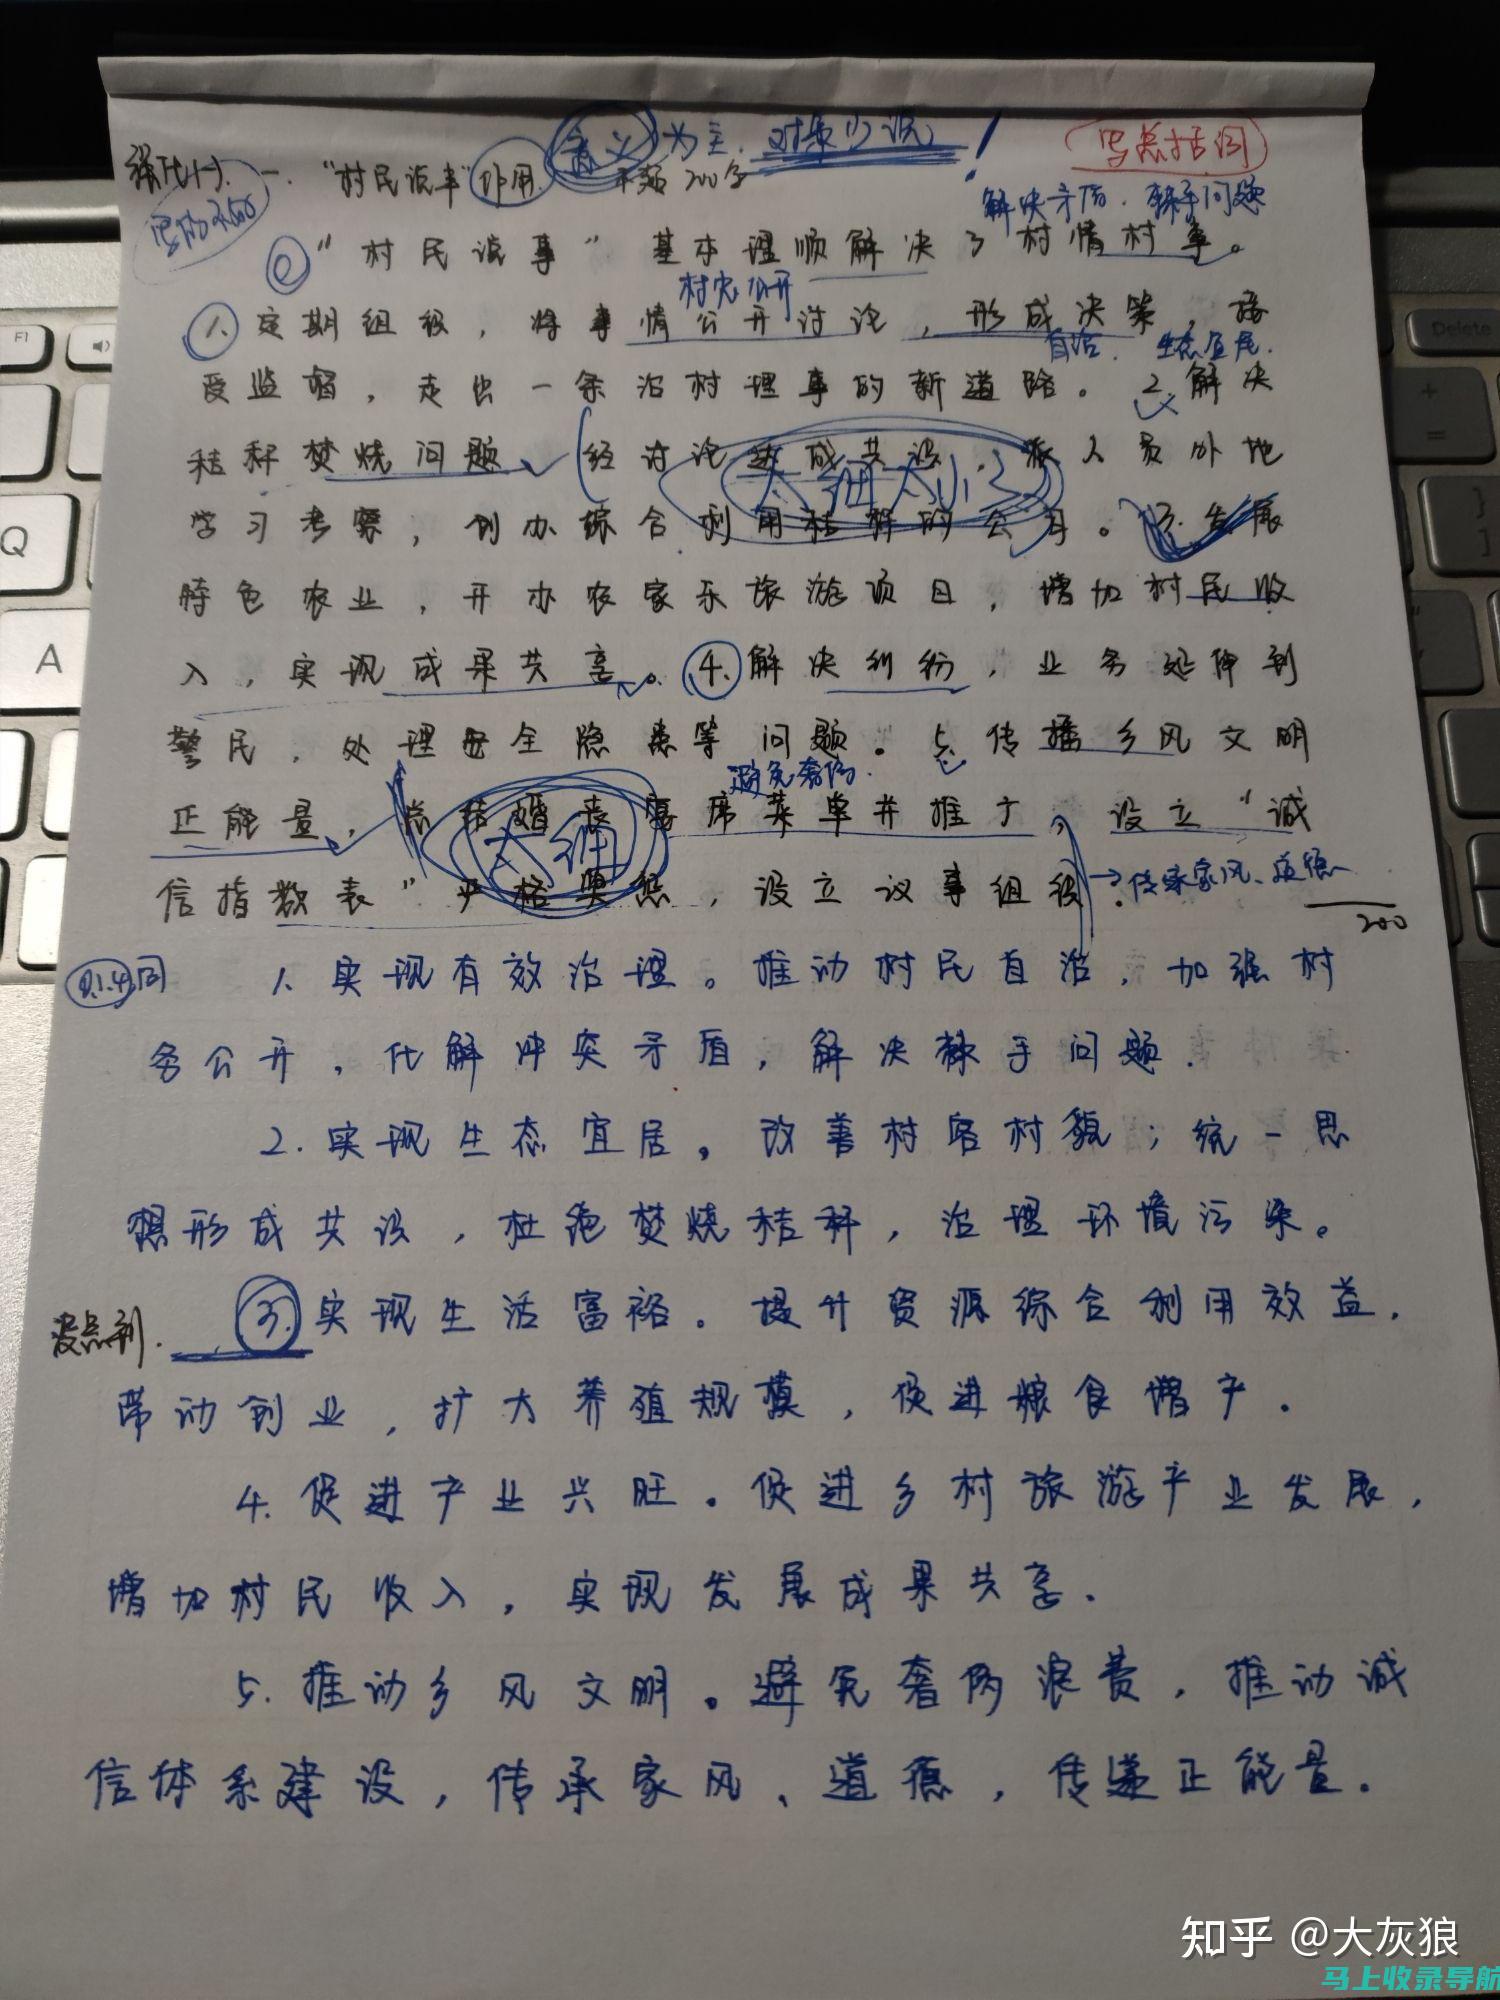 意义为主.对策少说!
写总括词
一."村民说事"作用 不超200字
解决矛盾.棘手问题
"村民说事"基本理顺解决了村情村事。
村务公开
1.定期组织,将事情公开讨论,形成决策,接
自治.生态宜居.
受监督,走出一条治村理事的新道路。2.解决
秸秆焚烧问题(经讨论达成共识,派人员外地
太细太小了
学习考察,创办综合利用秸秆的公司。3.发展
特色农业,开办农家乐旅游项目,增加村民收
入,实现成果共享。4.解决纠纷,业务延伸到
警民,处理安全隐患等问题。5.传播乡风文明
避免奢侈.
正能量,总结婚丧宴席菜单并推广,设立"诚
太细
信指数表"严格奖惩,设立议事组织.
→传承家风、道德
200
0.1.4同
1.实现有效治理。推动村民自治,加强村
务公开,化解冲突矛盾,解决棘手问题.
2.实现生态宜居。改善村容村貌;统一思
想形成共识,杜绝焚烧秸秆,治理环境污染。
没点到.
3.实现生活富裕。提升资源综合利用效益,
带动创业,扩大养殖规模,促进粮食增产.
4.促进产业兴旺。促进乡村旅游产业发展,
增加村民收入,实现发展成果共享.
5.推动乡风文明。避免奢侈浪费,推动诚
信体系建设,传承家风、道德,传递正能量.
知乎 @大灰狼
马上收录导航
F1
Delete
Q
A